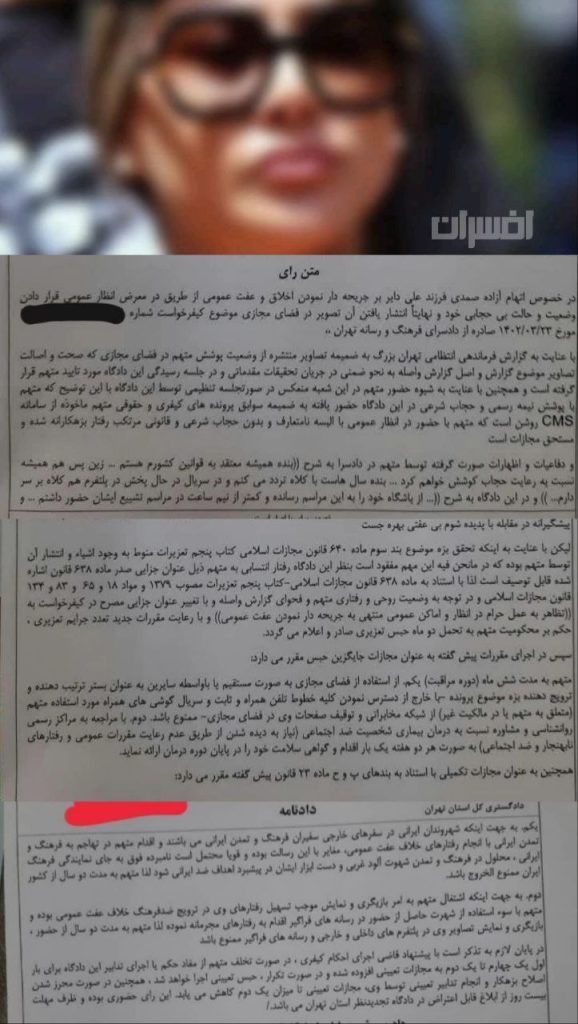 افسران
متن رای
در خصوص اتهام آزاده صمدی فرزند علی دایر بر جریحه دار نمودن اخلاق و عفت عمومی از طریق در معرض انظار عمومی قرار دادن
وضعیت و حالت بی حجابی خود و نهایتاً انتشار یافتن آن تصویر در فضای مجازی موضوع کیفرخواست شماره
مورخ ۱۴۰۲/۰۳/۲۳ صادره از دادسرای فرهنگ و رسانه تهران ،،
با عنایت به گزارش فرماندهی انتظامی تهران بزرگ به ضمیمه تصاویر منتشره از وضعیت پوشش متهم در فضای مجازی که صحت و اصالت
تصاویر موضوع گزارش و اصل گزارش واصله به نحو ضمنی در جریان تحقیقات مقدماتی و در جلسه رسیدگی این دادگاه مورد تایید متهم قرار
گرفته است و همچنین با عنایت به شیوه حضور متهم در این شعبه منعکس در صورتجلسه تنظیمی توسط این دادگاه با این توضیح که متهم
با پوشش نیمه رسمی و حجاب شرعی در این دادگاه حضور یافته به ضمیمه سوابق پرونده های کیفری و حقوقی متهم ماخوذه از سامانه
CMS روشن است که متهم با حضور در انظار عمومی با البسه نامتعارف و بدون حجاب شرعی و قانونی مرتکب رفتار بزهکارانه شده و
مستحق مجازات است
و دفاعیات و اظهارات صورت گرفته توسط متهم در دادسرا به شرح ((بنده همیشه معتقد به قوانین کشورم هستم ... زین پس هم همیشه
نسبت به رعایت حجاب کوشش خواهم کرد ... بنده سال هاست با کلاه تردد می کنم و در سریال در حال پخش در پلتفرم هم کلاه بر سر
دارم... )) و در این دادگاه به شرح ((... از باشگاه خود را به این مراسم رسانده و کمتر از نیم ساعت در مراسم تشییع ایشان حضور داشتم ... و
پیشگیرانه در مقابله با پدیده شوم بی عفتی بهره جست
لیکن با عنایت به اینکه تحقق بزه موضوع بند سوم ماده ۶۴۰ قانون مجازات اسلامی کتاب پنجم تعزیرات منوط به وجود اشیاء و انتشار آن
توسط متهم بوده که در مانحن فیه این مهم مفقود است بنظر این دادگاه رفتار انتسابی به متهم ذیل عنوان جزایی صدر ماده ۶۳۸ قانون اشاره
شده قابل توصیف است لذا با استناد به ماده ۶۳۸ قانون مجازات اسلامی-کتاب پنجم تعزیرات مصوب ۱۳۷۹ و مواد ۱۸ و ۶۵ و ۸۳ و ۱۳۴
قانون مجازات اسلامی و در توجه به وضعیت روحی و رفتاری متهم و فحوای گزارش واصله و با تغییر عنوان جزایی مصرح در کیفرخواست به
((تظاهر به عمل حرام در انظار و اماکن عمومی منتهی به جریحه دار نمودن عفت عمومی)) و با رعایت مقررات جدید تعدد جرایم تعزیری ،
حکم بر محکومیت متهم به تحمل دو ماه حبس تعزیری صادر و اعلام می گردد.
سپس در اجرای مقررات پیش گفته به عنوان مجازات جایگزین حبس مقرر می دارد:
متهم به مدت شش ماه (دوره مراقبت) یکم. از استفاده از فضای مجازی به صورت مستقیم یا باواسطه سایرین به عنوان بستر ترتیب دهنده و
ترویج دهنده بزه موضوع پرونده -با خارج از دسترس نمودن کلیه خطوط تلفن همراه و ثابت و سریال گوشی های همراه مورد استفاده متهم
(متعلق به متهم یا در مالکیت غیر) از شبکه مخابراتی و توقیف صفحات وی در فضای مجازی- ممنوع باشد. دوم. با مراجعه به مراکز رسمی
روانشناسی و مشاوره نسبت به درمان بیماری شخصیت ضد اجتماعی (نیاز به دیده شدن از طریق عدم رعایت مقررات عمومی و رفتارهای
نابهنجار و ضد اجتماعی) به صورت هر دو هفته یک بار اقدام و گواهی سلامت خود را در پایان دوره درمان ارائه نماید.
همچنین به عنوان مجازات تکمیلی با استناد به بندهای پ و ح ماده ۲۳ قانون پیش گفته مقرر می دارد:
دادگستری کل استان تهران
دادنامه
یکم. به جهت اینکه شهروندان ایرانی در سفرهای خارجی سفیران فرهنگ و تمدن ایرانی می باشند و اقدام متهم در تهاجم به فرهنگ و
تمدن ایرانی با انجام رفتارهای خلاف عفت عمومی، مغایر با این رسالت بوده و قویا محتمل است نامبرده فوق به جای نمایندگی فرهنگ
ایرانی ، محلول در فرهنگ و تمدن شهوت آلود غربی و دست ابزار ایشان در پیشبرد اهداف ضد ایرانی شود لذا متهم به مدت دو سال از کشور
ایران ممنوع الخروج باشد.
دوم. به جهت اینکه اشتغال متهم به امر بازیگری و نمایش موجب تسهیل رفتارهای وی در ترویج ضدفرهنگ خلاف عفت عمومی بوده و
متهم با سوء استفاده از شهرت حاصل از حضور در رسانه های فراگیر اقدام به رفتارهای مجرمانه نموده لذا متهم به مدت دو سال از حضور ،
بازیگری و نمایش تصاویر وی در پلتفرم های داخلی و خارجی و رسانه های فراگیر ممنوع باشد
در پایان لازم به تذکر است با پیشنهاد قاضی اجرای احکام کیفری، در صورت تخلف متهم از مفاد حکم یا اجرای تدابیر این دادگاه برای بار
اول یک چهارم تا یک دوم به مجازات تعیینی افزوده شده و در صورت تکرار ، حبس تعیینی اجرا خواهد شد ، همچنین در صورت محرز شدن
اصلاح بزهکار و انجام تدابیر تعیینی توسط وی، مجازات تعیینی تا میزان یک دوم کاهش می یابد. این رای حضوری بوده و ظرف مهلت
بیست روز از ابلاغ قابل اعتراض در دادگاه تجدیدنظر استان تهران می باشد./